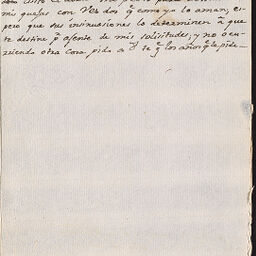 mis quejas con Vds dos q̃ como yo lo aman; es-
pero que sus insinuasiones lo determinen à que
te destine pª asente de mis solisitudes; y no ocu-
rriendo otra cosa pido a Dˢ te gᵉ los años q̃ te pide